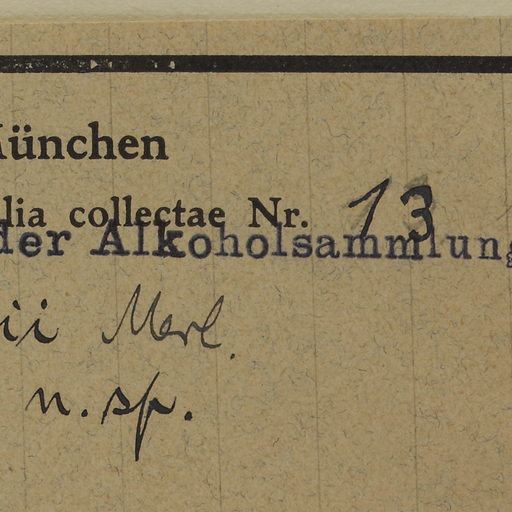 München
lia collectae Nr. 13
der Alkoholsammlung
ii Merl.
n. sp.